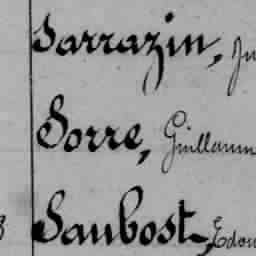 Sarrazin, Ju
Sorre, Guillaum
Saubost, Edou